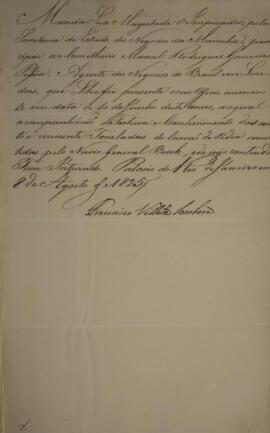 Manda Sua Magestade O Imperador, pela
Secretaria de Estado dos Negocios da Marinha, parti
cipar ao Conselheiro Manoel Rodrigues Gameiro
Pessôa, Agente dos Negocios do Brazil em Lon
dres, que Lhe foi presente seu Officio numero
em data de 10 de Junho deste anno, ao qual
acompanhárão a Factura e Conhecimento das
e Toneladas de Carvão de Pedra remet
tidas pelo Navio General Brock, de cujo contendo
Ficou Inteirado. Palacio do Rio de Janeiro em
8 de Agosto de 1825
Francisco Villela Barboza